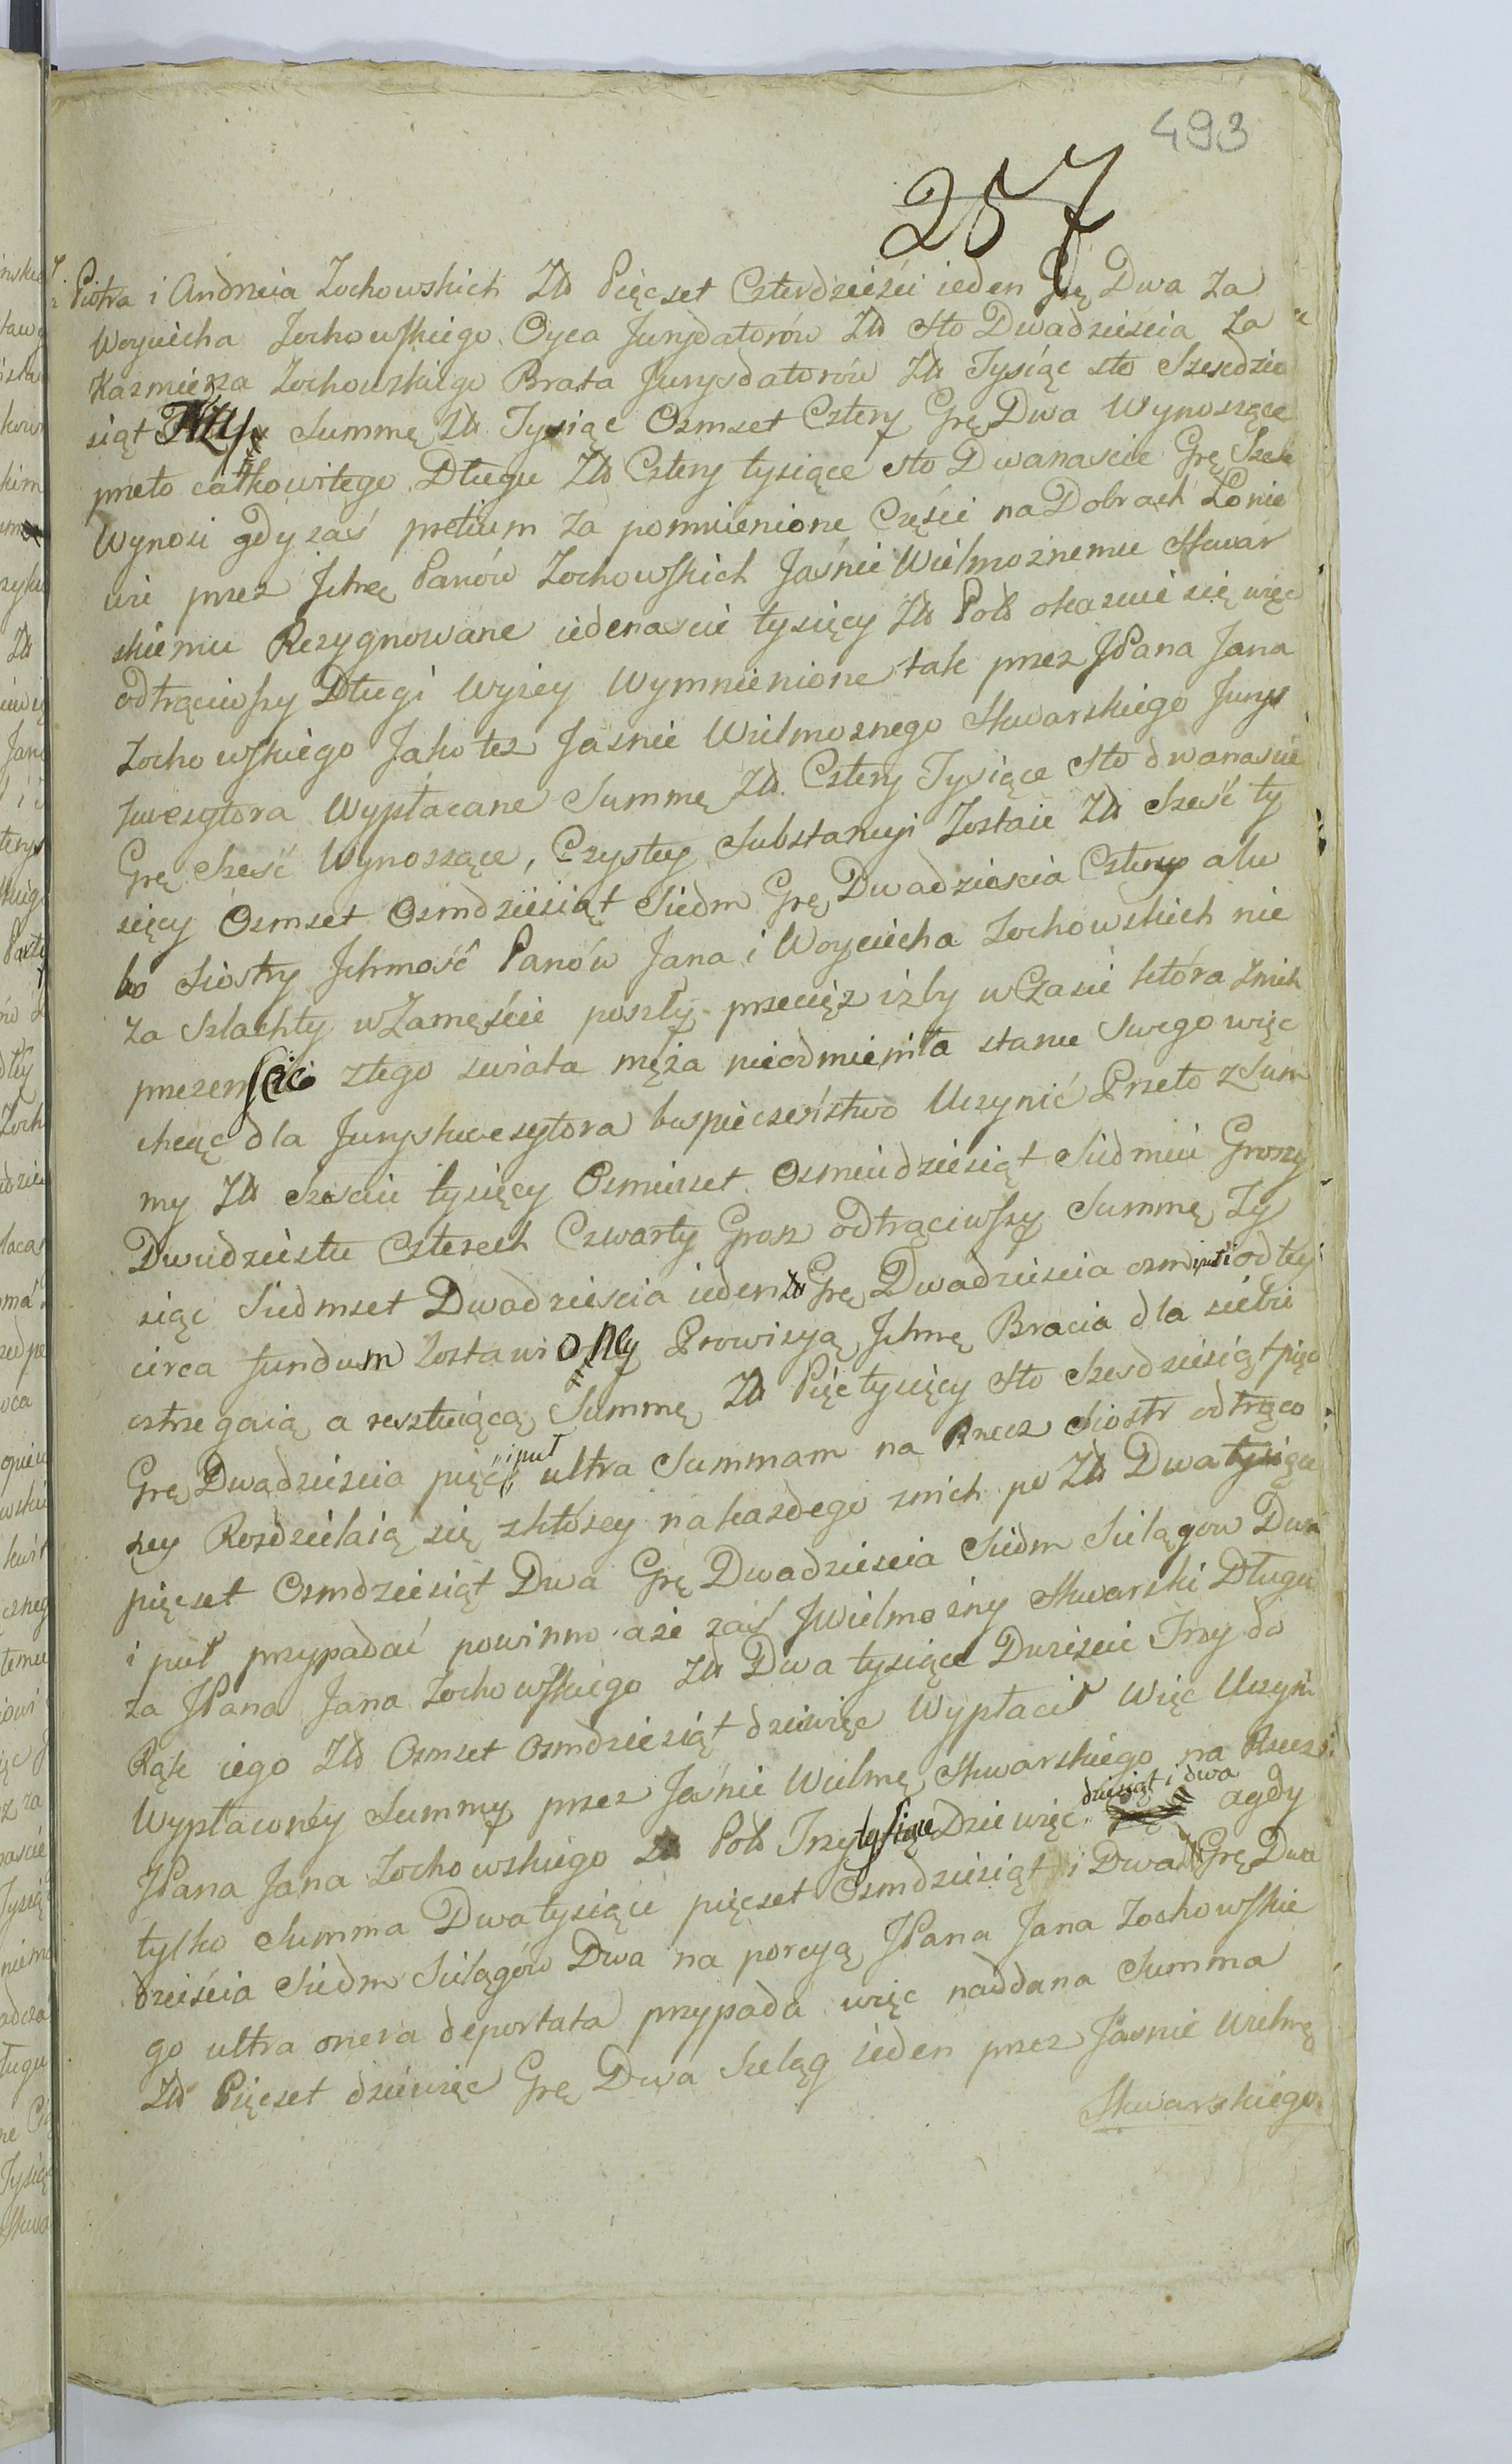 493
257
Piotra i Andrzeia Zochowskich Zł Pięcset Czterdzieści ieden Grę Dwa Za
Woyciecha Zochowskiego Oyca Jurysdatorów Zł Sto Dwadzieścia Za
Kazmierza Zochowskiego Brata Jurysdatorów Zł Tysiąc sto Szesdzie
siąt Trzy Summę Zł Tysiąc Osmset Cztery Grę Dwa Wynoszące
przeto całkowitego Długu Zł Cztery tysiące sto Dwanascie Grę Szesc
Wynosi gdy zaś pretium za pomienione Części na Dobrach Łonie
wie przez Jchmę Panów Zochowskich Jaśnie Wielmożnemu Skwar
skiemu Rezygnowane iedenascie tysięcy Zł Pols okazuie się więc
odtrąciwszy Długi Wyżey Wymnienione tak przez JPana Jana
Zochowskiego Jako tez Jasnie Wielmoznego Skwarskiego Jurys
kwesytora Wypłacane Summę Zł Cztery Tysiące Sto dwanascie
Grę Sześć Wynoszące, Czystey Substancyi Zostaie Zł Sześć ty
sięcy Osmset Osmdziesiąt Siedm Grę Dwadzieścia Cztery alu
bo Siostry Jchmość Panów Jana i Woyciecha Zochowskich nie
za Szlachty w Zamęście poszły przecięz izby w Czasie która znich
przeniosc ztego swiata męża nieodmieniła stanu Swego więc
chcąc dla Juryskwesytora bespieczeństwo Uczynić Przeto z Sum
my Zł Szesciu tysięcy Osmiuset Osmiudziesiąt Siedmiu Groszy
Dwudziestu Czterech Czwarty Grosz odtrąciwszy Summę Ty
siąc Siedmset Dwadzieścia ieden Zł Grę Dwadzieścia osm i puł od tey
circa fundum Zostawioney Prowizyą Jchmę Bracia dla siebie
ostrzegaią a resztuiącą Summę Zł Pięć tysięcy Sto Szesdziesiąt pięc
Grę Dwadzieścia pięć i puł ultra Summam na Rzecz Siostr odtrąco
ney Rozdzielaią się zktórey na kazdego znich po Zł Dwa tysiące
pięcset Osmdziesiąt Dwa Grę Dwadzieścia Siedm Szilągow Dwa
i puł przypadać powinno aże zaś JWielmożny Skwarski Długu
za JPana Jana Zochowskiego Zł Dwa tysiące Dwiescie Trzy do
Rąk iego Zł Osmset Osmdziesiąt dziewięc Wypłacił więc Uczyni
Wypłaconey Summy przez Jaśnie Wielmę Skwarskiego na Rzecz
JPana Jana Zochowskiego Zł Pols Trzy tysiące Dziewięc dziesiąt i dwa agdy
tylko Summa Dwa tysiące pięcset Osmdziesiąt i Dwa Zł Grę Dwa
dzieścia Siedm Szilągów Dwa na porcyą JPana Jana Zochowskie
go ultra onera deportata przypada więc naddana Summa
Zł Pięcset dziewięc Grę Dwa Szeląg ieden przez Jasnie Wielmę
Skwarskiego